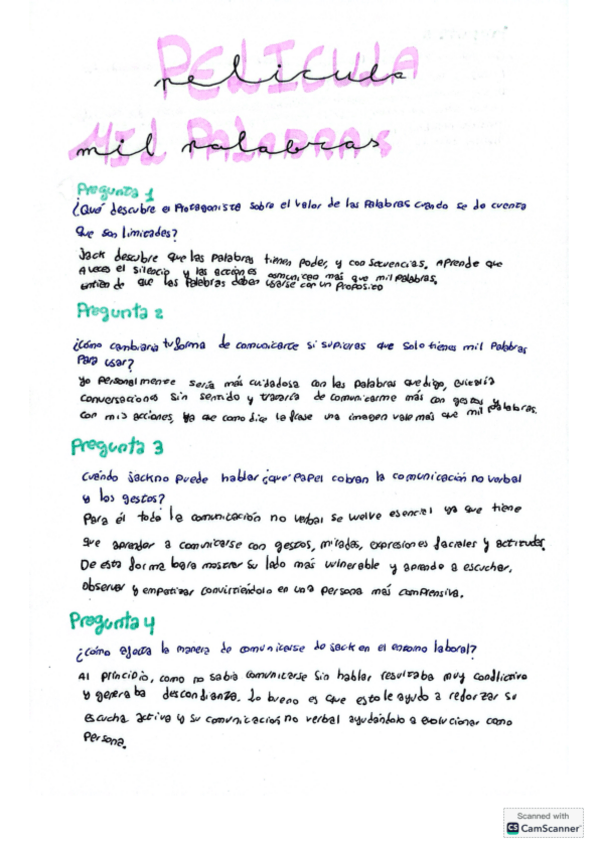 PELICULA
pelicula
MIL PALABRAS
mil palabras
Pregunta 1
¿Qué descubre el Protagonista sobre el valor de las Palabras cuando se da cuenta
que son limitadas?
Jack descubre que las Palabras tienen Poder, y consecuencias. Aprende que
a veces el silencio y las acciones comunican más que mil Palabras.
entiende que las Palabras deben usarse con un Proposito
Pregunta 2
¿Cómo cambiaria tu forma de comunicarte si supieras que solo tienes mil Palabras
Para usar?
Yo Personalmente seria más cuidadosa con las Palabras que digo, evitaría
conversaciones sin sentido y trataría de comunicarme más con gestos y
con mis acciones, Ya que como dice la frase una imagen vale más que mil palabras.
Pregunta 3
Cuándo Jack no Puede hablar ¿que Papel cobran la comunicación no verbal
y los gestos?
Para él toda la comunicación no verbal se vuelve esencial ya que tiene
que aprender a comunicarse con gestos, miradas, expresiones faciales y actitudes.
De esta forma logra mostrar su lado más vulnerable y aprende a escuchar,
observar y empatizar convirtiéndolo en una Persona más comprensiva.
Pregunta 4
¿Cómo afecta la manera de comunicarse de Jack en el entorno laboral?
Al Principio, como no sabía comunicarse sin hablar resultaba muy conflictivo
y generaba desconfianza. Lo bueno es que esto le ayudo a reforzar su
escucha activa y su comunicación no verbal ayudándolo a evolucionar como
Persona.
Scanned with
CS CamScanner